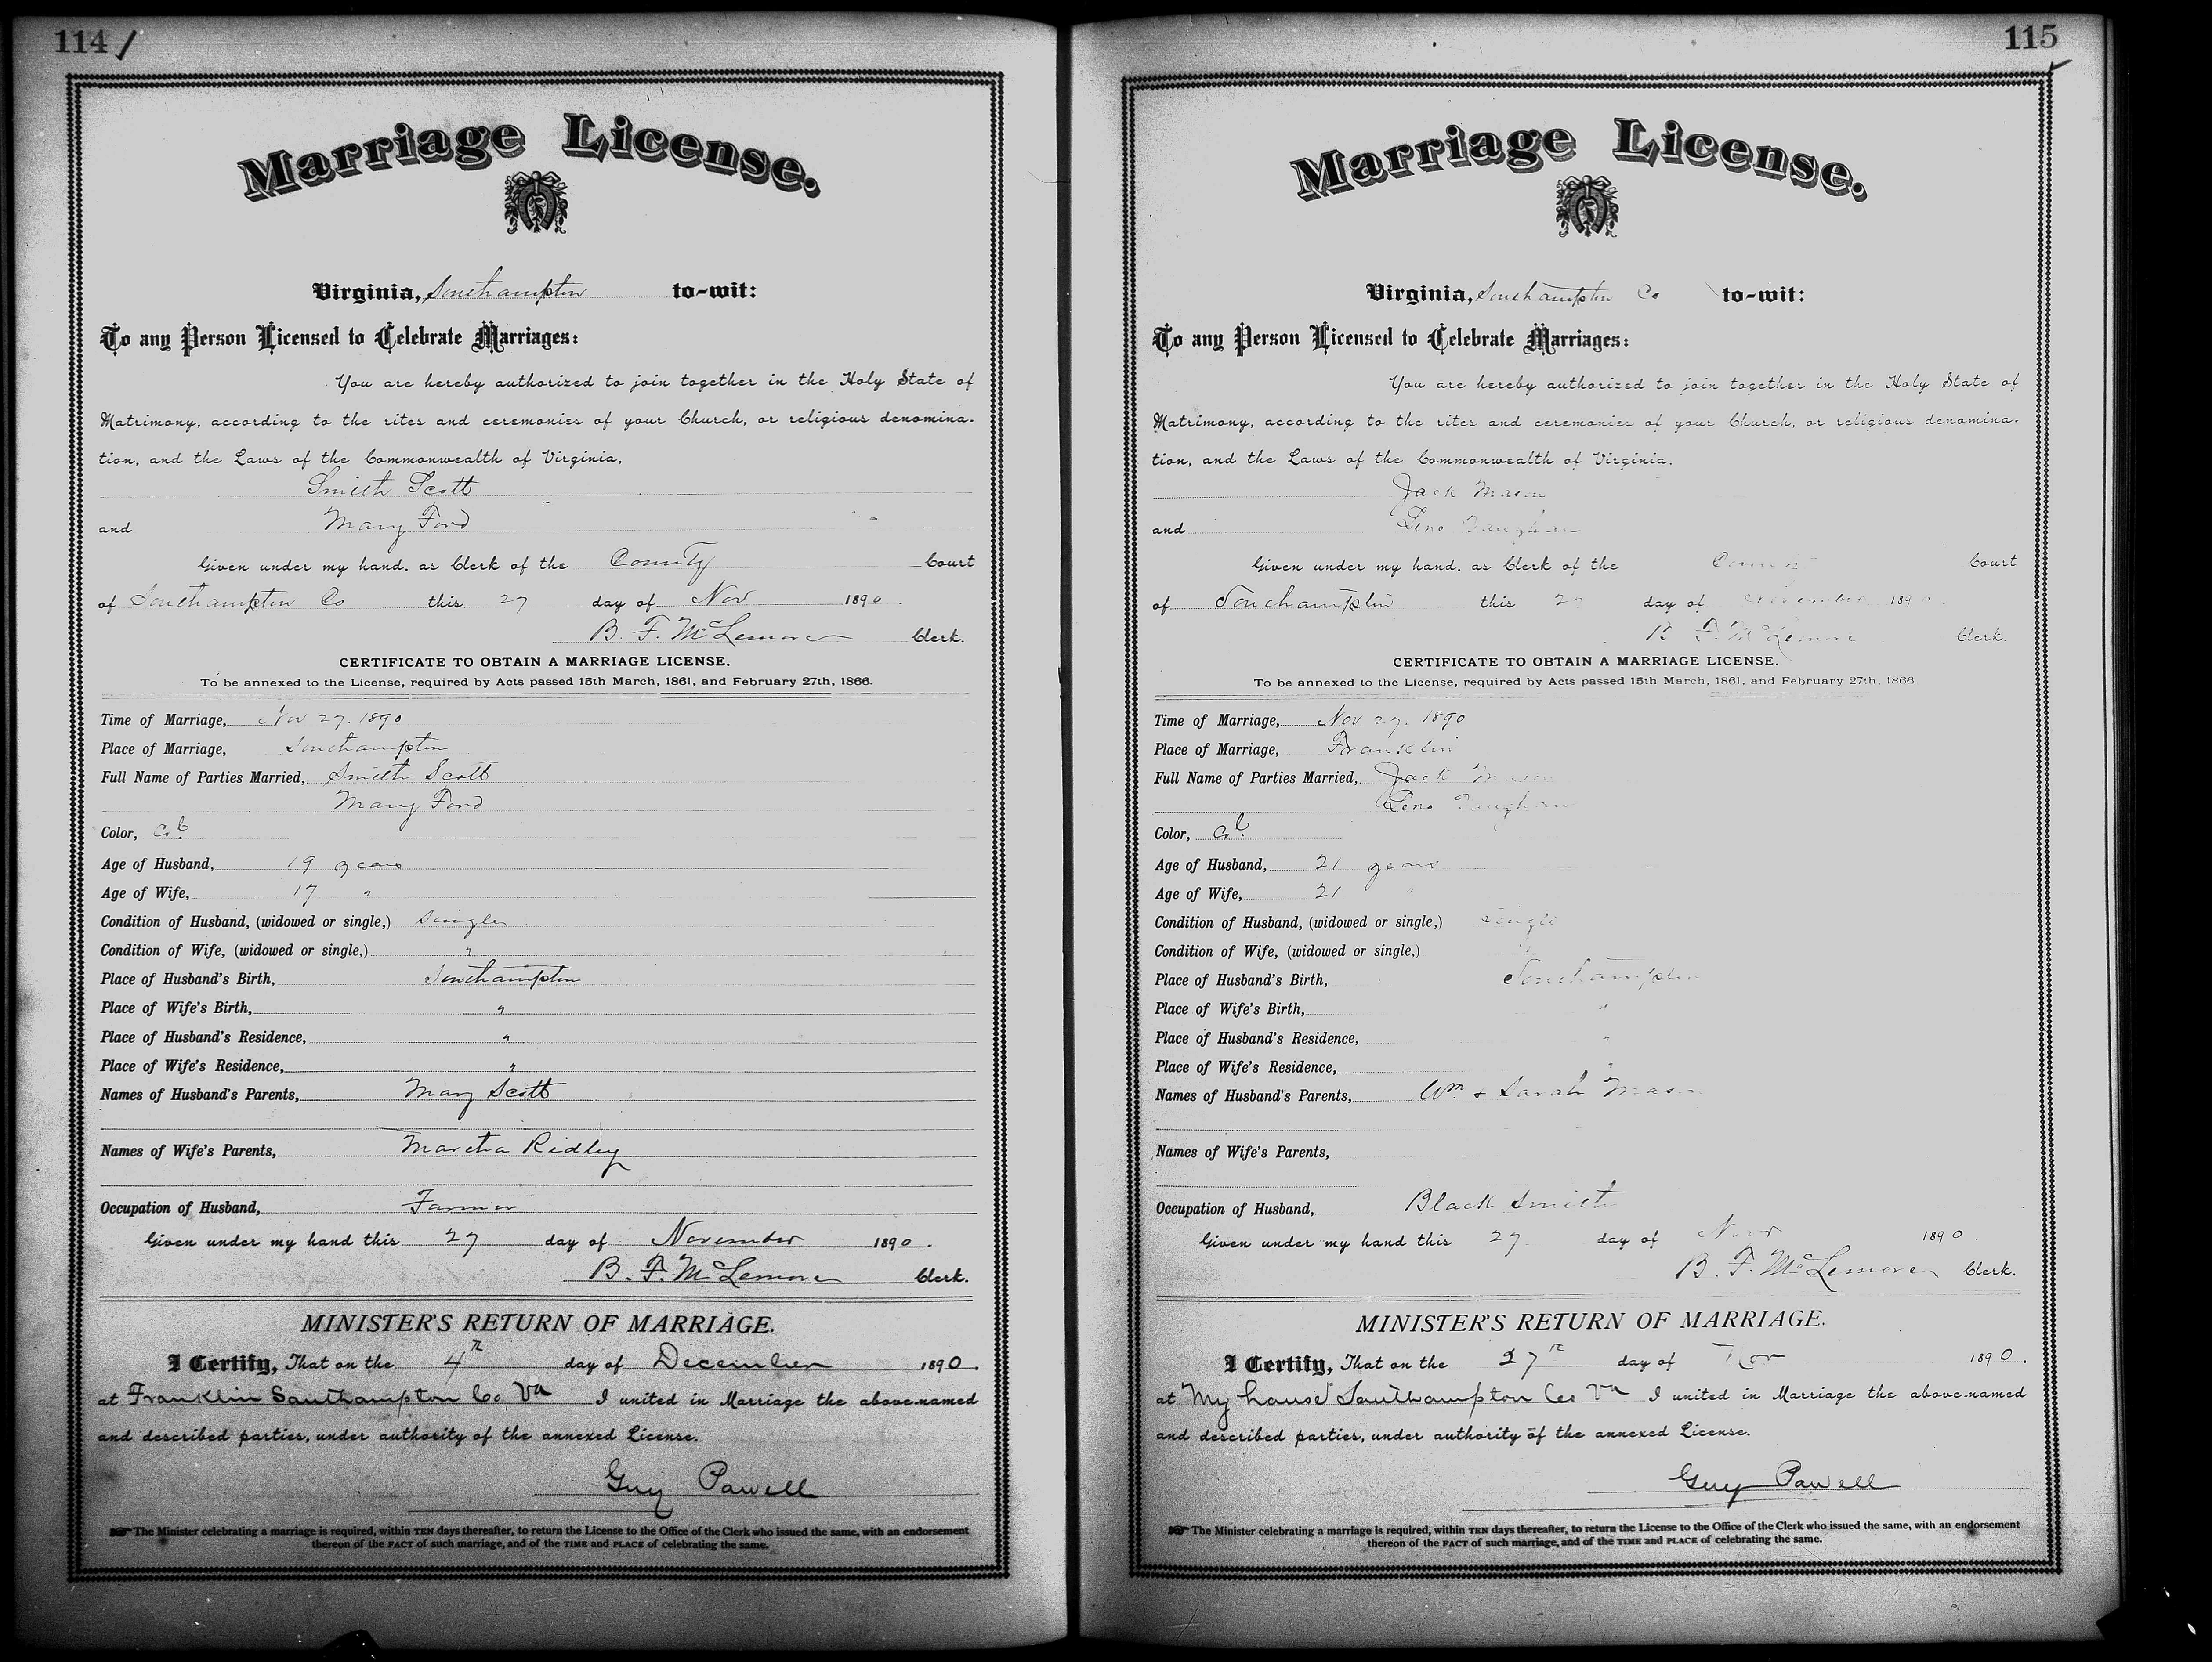 114
Marriage License.
Virginia, Southampton to-wit:
To any Person Licensed to Celebrate Marriages:
You are hereby authorized to join together in the Holy State of
Matrimony, according to the rites and ceremonies of your Church, or religious denomina-
tion, and the Laws of the Commonwealth of Virginia,
Smith Scott
and Mary Ford
Given under my hand, as Clerk of the County Court
of Southampton Co this 27 day of Nov 1890.
B. F. McLemore Clerk.
CERTIFICATE TO OBTAIN A MARRIAGE LICENSE.
To be annexed to the License, required by Acts passed 15th March, 1861, and February 27th, 1866.
Time of Marriage, Nov 27. 1890
Place of Marriage, Southampton
Full Name of Parties Married, Smith Scott
Mary Ford
Color, Col.
Age of Husband, 19 years
Age of Wife, 17 "
Condition of Husband, (widowed or single,) Single
Condition of Wife, (widowed or single,) "
Place of Husband's Birth, Southampton
Place of Wife's Birth, "
Place of Husband's Residence, "
Place of Wife's Residence, "
Names of Husband's Parents, Mary Scott
Names of Wife's Parents, Martha Ridley
Occupation of Husband, Farmer
Given under my hand this 27 day of November 1890.
B. F. McLemore Clerk.
MINISTER'S RETURN OF MARRIAGE.
I Certify, That on the 4th day of December 1890.
at Franklin Southampton Co. Va I united in Marriage the above-named
and described parties, under authority of the annexed License.
Guy Powell
The Minister celebrating a marriage is required, within TEN days thereafter, to return the License to the Office of the Clerk who issued the same, with an endorsement
thereon of the FACT of such marriage, and of the TIME and PLACE of celebrating the same.
115
Marriage License.
Virginia, Southampton Co to-wit:
To any Person Licensed to Celebrate Marriages:
You are hereby authorized to join together in the Holy State of
Matrimony, according to the rites and ceremonies of your Church, or religious denomina-
tion, and the Laws of the Commonwealth of Virginia,
Jack Mason
and Vaughan
Given under my hand, as Clerk of the County Court
of Southampton this 27 day of November 1890.
B. F. McLemore Clerk.
CERTIFICATE TO OBTAIN A MARRIAGE LICENSE.
To be annexed to the License, required by Acts passed 15th March, 1861, and February 27th, 1866.
Time of Marriage, Nov 27. 1890
Place of Marriage, Franklin
Full Name of Parties Married, Jack Mason
Vaughan
Color, Col.
Age of Husband, 21 years
Age of Wife, 21 "
Condition of Husband, (widowed or single,) Single
Condition of Wife, (widowed or single,) "
Place of Husband's Birth, Southampton
Place of Wife's Birth, "
Place of Husband's Residence, "
Place of Wife's Residence, "
Names of Husband's Parents, Wm & Sarah Mason
Names of Wife's Parents,
Occupation of Husband, Black Smith
Given under my hand this 27 day of Nov 1890.
B. F. McLemore Clerk.
MINISTER'S RETURN OF MARRIAGE.
I Certify, That on the 27th day of Nov 1890.
at "My house" Southampton Co Va I united in Marriage the above-named
and described parties, under authority of the annexed License.
Guy Powell
The Minister celebrating a marriage is required, within TEN days thereafter, to return the License to the Office of the Clerk who issued the same, with an endorsement
thereon of the FACT of such marriage, and of the TIME and PLACE of celebrating the same.